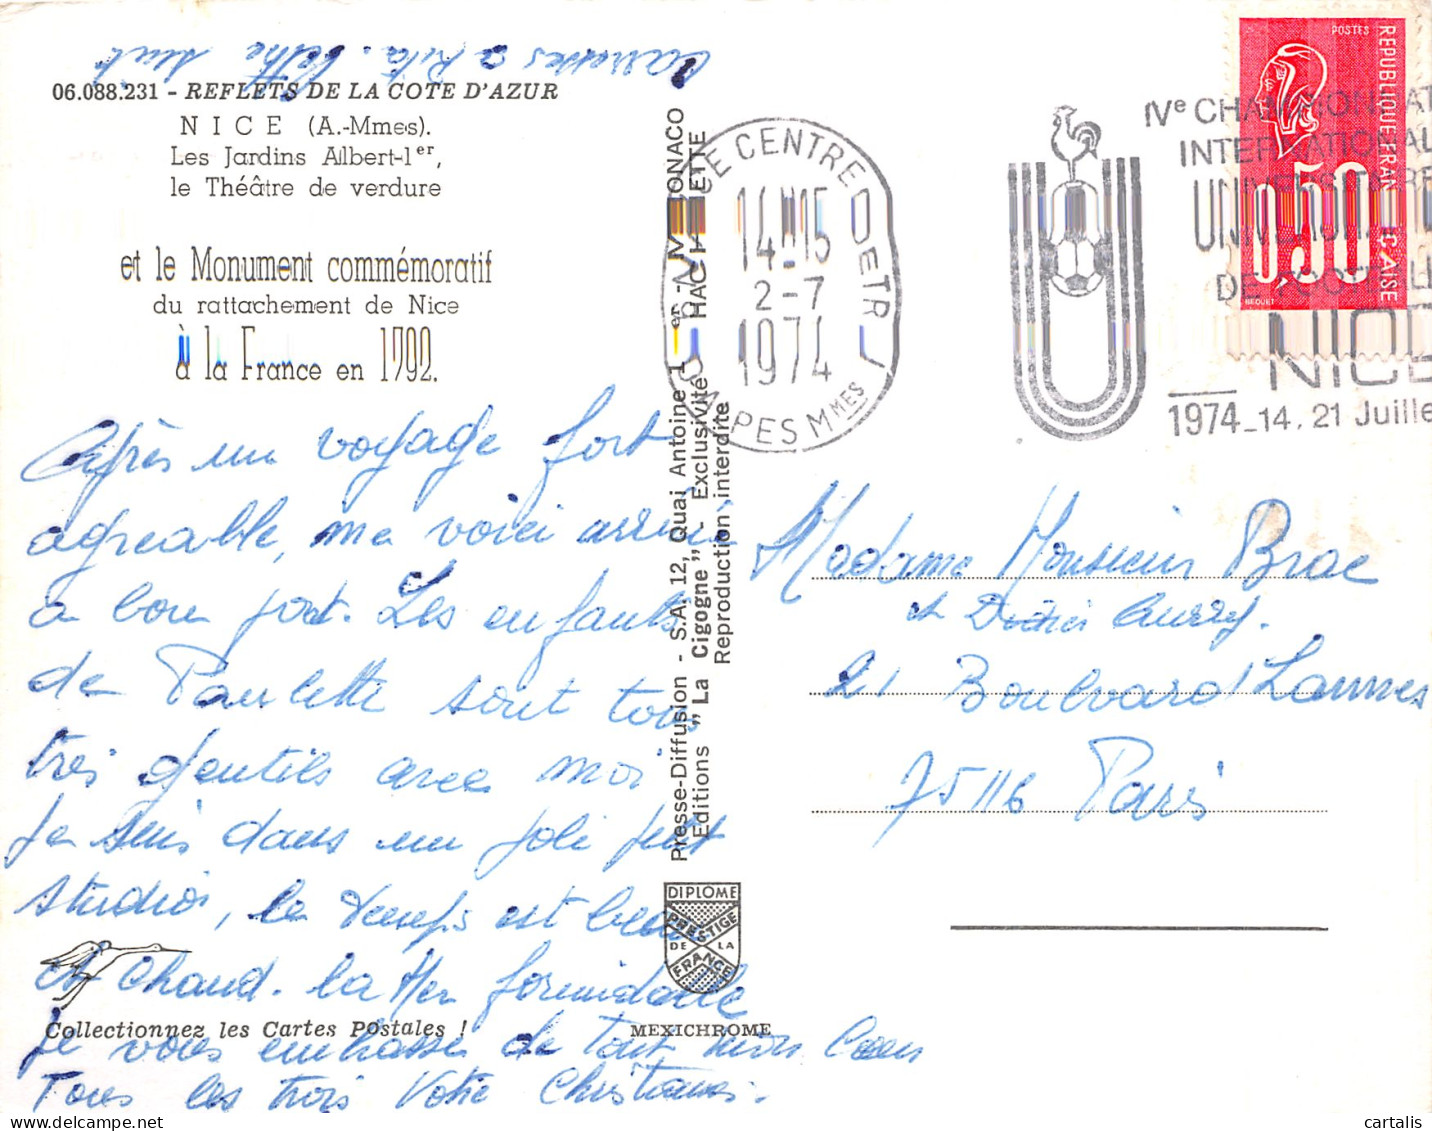 Caresses a Rita. Petite
06.088.231 - REFLETS DE LA COTE D'AZUR
NICE (A.-Mmes).
Les Jardins Albert-1er,
le Théâtre de verdure
et le Monument commémoratif
du rattachement de Nice
à la France en 1792.
Après un voyage fort
agreable, me voici arrivée
a bon port. Les enfants
de Paulette sont tous
très gentils avec moi
Je suis dans un joli petit
studio, le temps est beau
et chaud. la Mer formidable
Je vous embrasse de tout mon Coeur
Tous les trois Votre Christiane.
Collectionnez les Cartes Postales !
MEXICHROME
DIPLOME
PRESTIGE
DE LA
FRANCE
Presse-Diffusion - S.A. 12, Quai Antoine 1er - MONACO
Editions "La Cigogne" - Exclusivité HACHETTE
Reproduction interdite
CENTRE
14H15
2-7
1974
ALPES Mmes
IVe CHAMPIONNAT
INTERNATIONAL
UNIVERSITAIRE
DE FOOTBALL
NICE
1974_14, 21 Juille
POSTES
REPUBLIQUE FRANÇAISE
0,50
BEQUET
Madame Monsieur Brac
et Didier
21 Boulevard Lannes
75116 Paris
cartalis